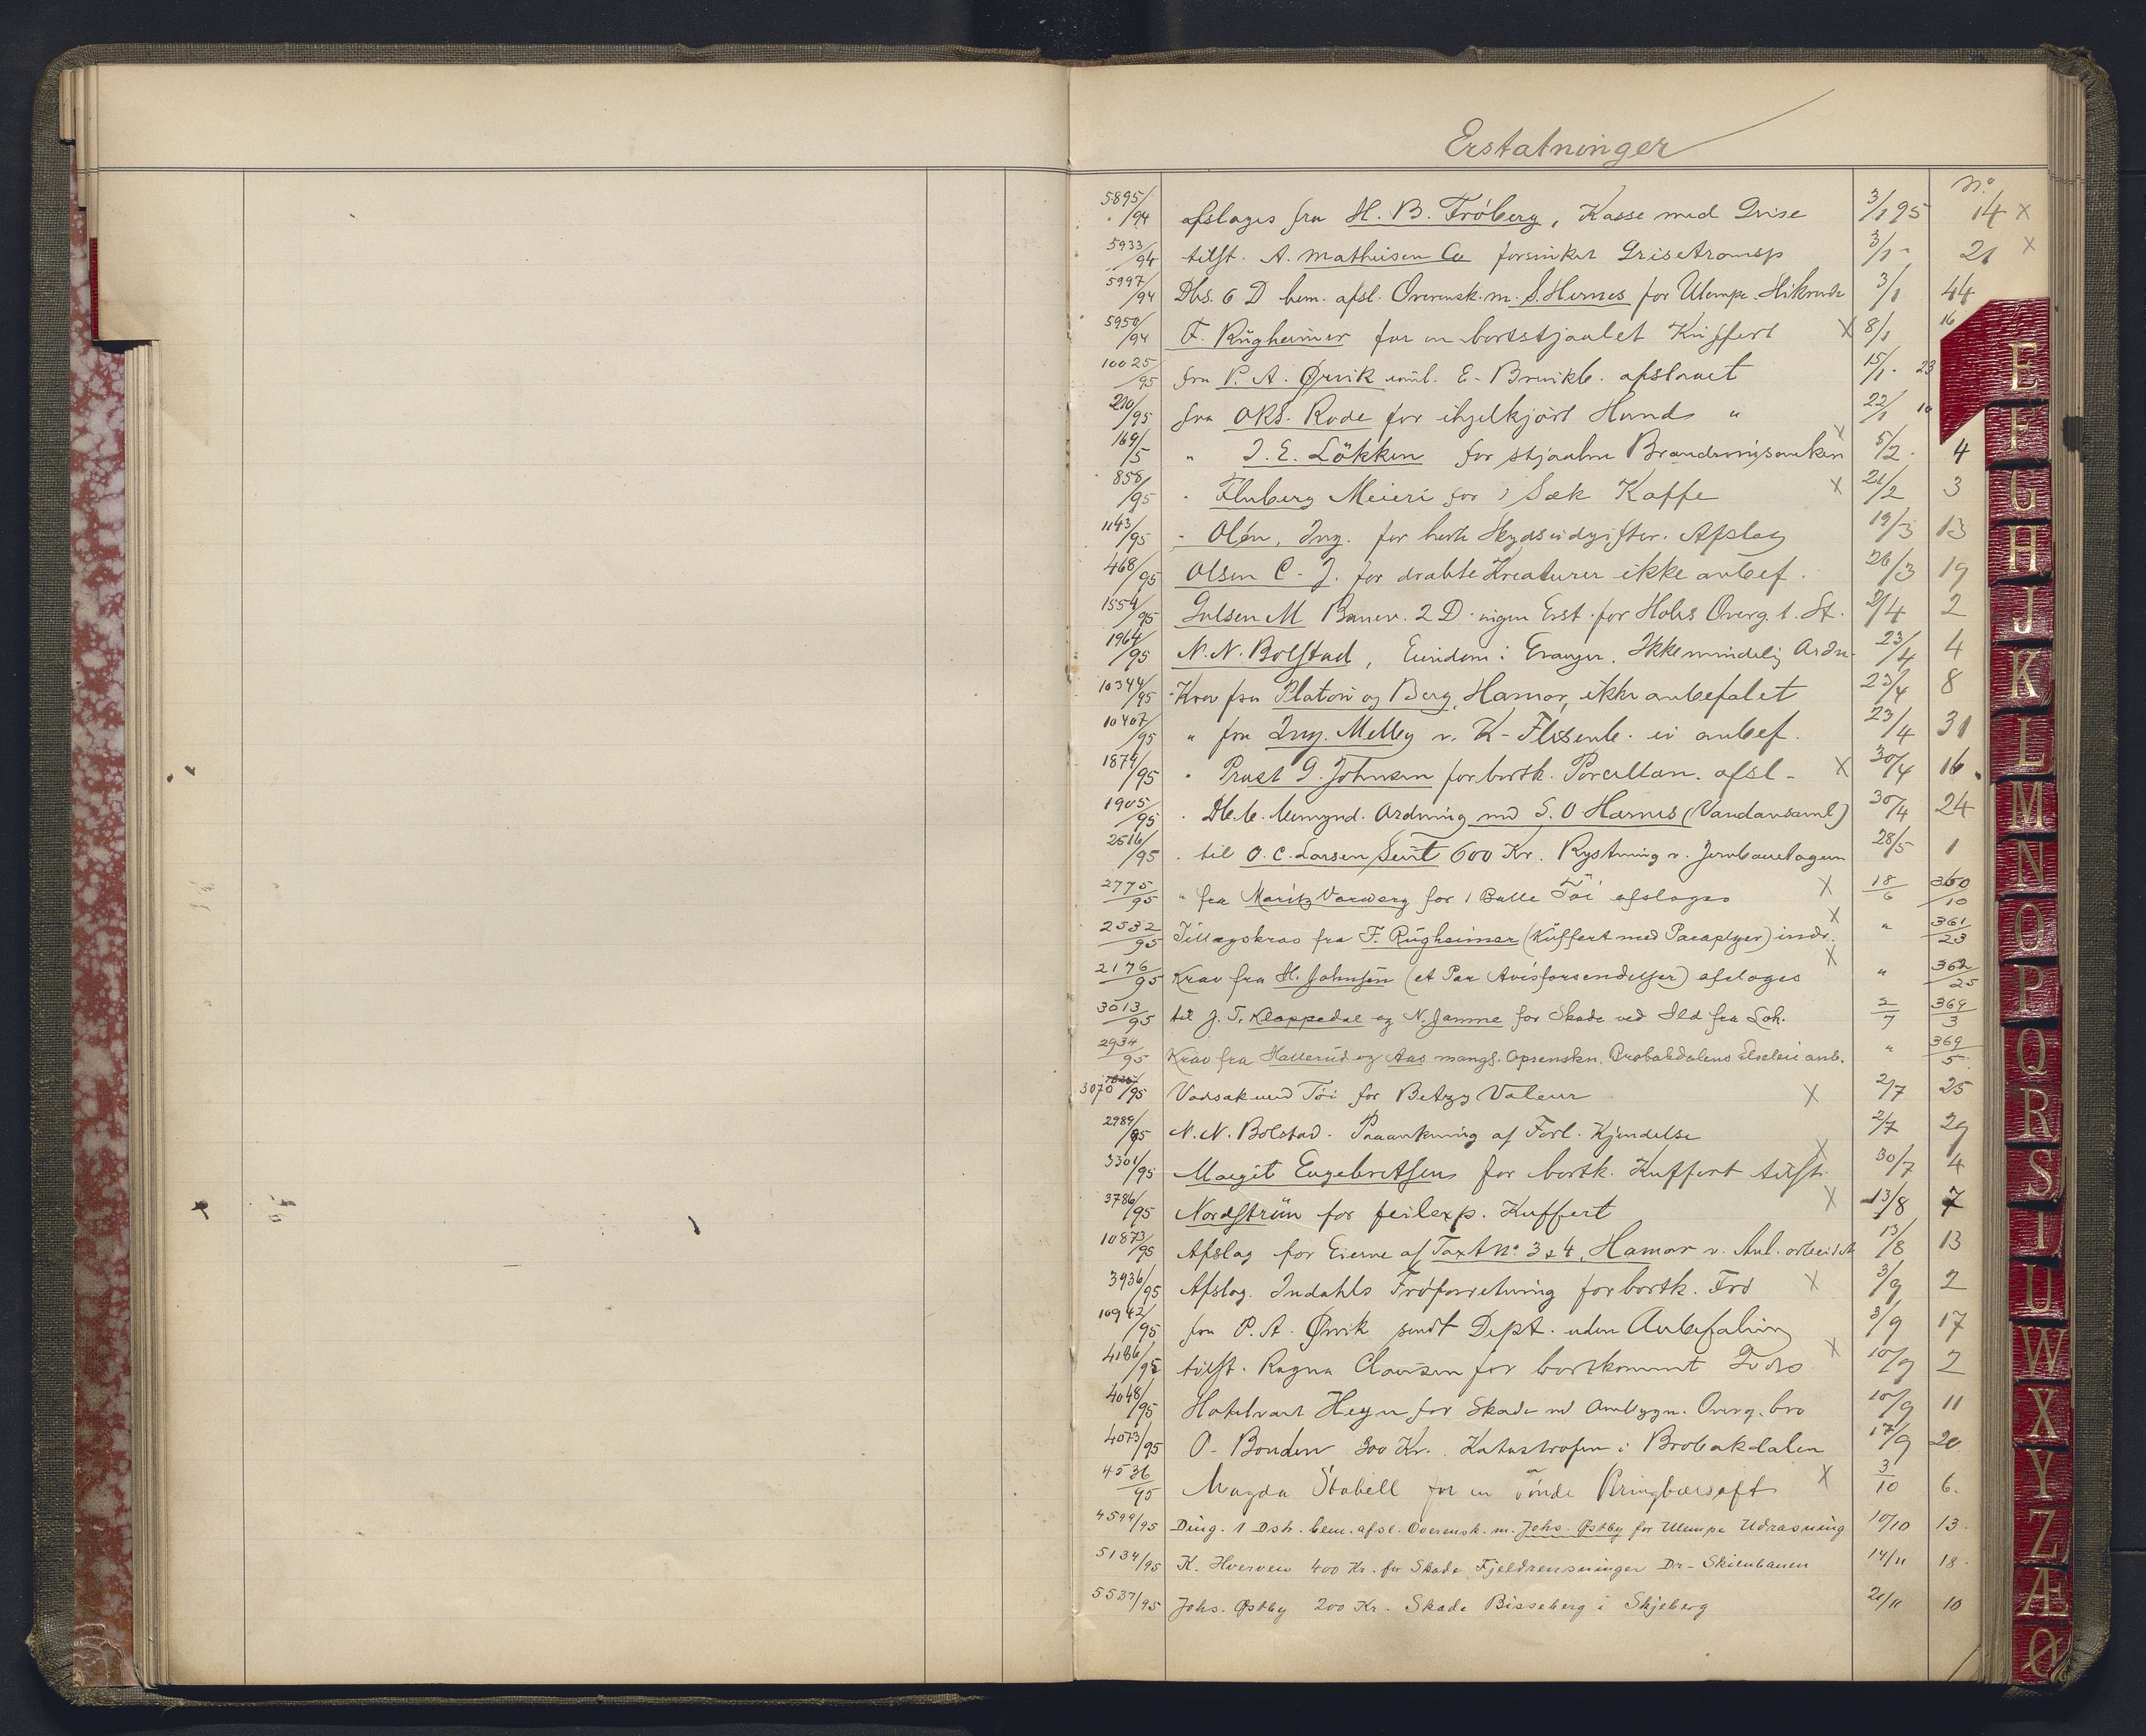 Erstatninger
No
5895/94 afslages fra H. B. Fröberg, Kasse med Grise 3/1 95 14 x
5933/94 tilst. A. Mathiesen Co forsinket Grisetransp 3/1 " 21 x
5997/94 Dbs. 6 D bem. afsl. Overensk. m. S. Hernes for Ulempe 3/1 44
5950/94 F. Rügheimer for en bortstjaalet Kuffert x 8/1 16
10025/95 fra P. A. Ørvik afslaaet 15/1 23
210/95 fra OKS. Rode for ihjelkjørt Hund " 22/1 10
169/5 " J. E. Lökken for stjaalne x 5/2 4
858/95 " Fluberg Meieri for 1 Sæk Kaffe x 26/2 3
1143/95 " Olén, Ing. for Afslag 19/3 13
468/95 Olsen C. J. for dræbte Kreaturer ikke anbef. 26/3 19
1554/95 Gulsen M Banev. 2 D. ingen Erst. for Overg. 1. St. 2/4 2
1964/95 N. N. Bolstad, Eiendom i Ikke mindelig Ordn. 23/4 4
10344/95 Krav fra Platou og Berg, Hamar, ikke anbefalet 23/4 8
10407/95 " fra Ing. Melby v. K-Flisenb. ei anbef. 23/4 31
1879/95 " Prost G. Johnsen for bortk. Porcellan. afsl. x 30/4 16
1905/95 " Ordning med S. O Hærnes (Vandansaml) 30/4 24
2516/95 " til O. C. Larsen Seut 600 Kr. Rystning v. 28/5 1
2775/95 " fra Moritz Vorwerg for 1 Balle Töi afslages x 18/6 360/10
2532/95 Tillægskrav fra F. Rügheimer (Küffert med Paraplyer) indr. x " 361/23
2176/95 Krav fra H. Johnsen (et Par Avisforsendelser) afslages x " 362/25
3013/95 til J. T. Kloppedal og N. Jamne for Skade ved Ild fra Lok. 2/7 369/3
2934/95 Krav fra Hallerud og Aas mangl. Oprenskn. Brobakdalens anb. " 369/5
3070/95 Vadsæk med Töi for Betzy Valeur x 2/7 25
2989/95 N. N. Bolstad. Paaankning af Forl. Kjendelse 2/7 29
3301/95 Margit Engebretsen for bortk. Kuffert tilst. x 30/7 4
3786/95 Nordström for feilexp. Kuffert x 13/8 7
10873/95 Afslag for Eierne af Taxt No 3 & 4, Hamar v. Anl. 13/8 13
3936/95 Afslag. Indahls Fröforretning for bortk. Frö x 3/9 2
10942/95 fra P. A. Ørvik sendt Dept. uden Anbefaling 3/9 17
4186/95 tilst. Ragna Clausen for bortkommet x 10/9 2
4048/95 Hotelvært Heyn for Skade ved Overg. bro 10/9 11
4073/95 O. Bonden 300 Kr. Katastrofen i Brobakdalen 17/9 20
4536/95 Magda Stabell for en Tönde Bringbærsaft x 3/10 6.
4599/95 Ding. 1 Dsh. bem. afsl. Overensk. m. Johs. Østby for Ulempe Udrasning 10/10 13.
5134/95 K. Hverven 400 Kr. for Skade Fjeldrensninger Dr- Skienbanen 14/11 18.
5537/95 Johs. Østby 200 Kr. Skade Bisseberg i Skjeberg 21/11 10
E
F
G
H
J
K
L
M
N
O
P
Q
R
S
T
U
W
X
Y
Z
Æ
Ø